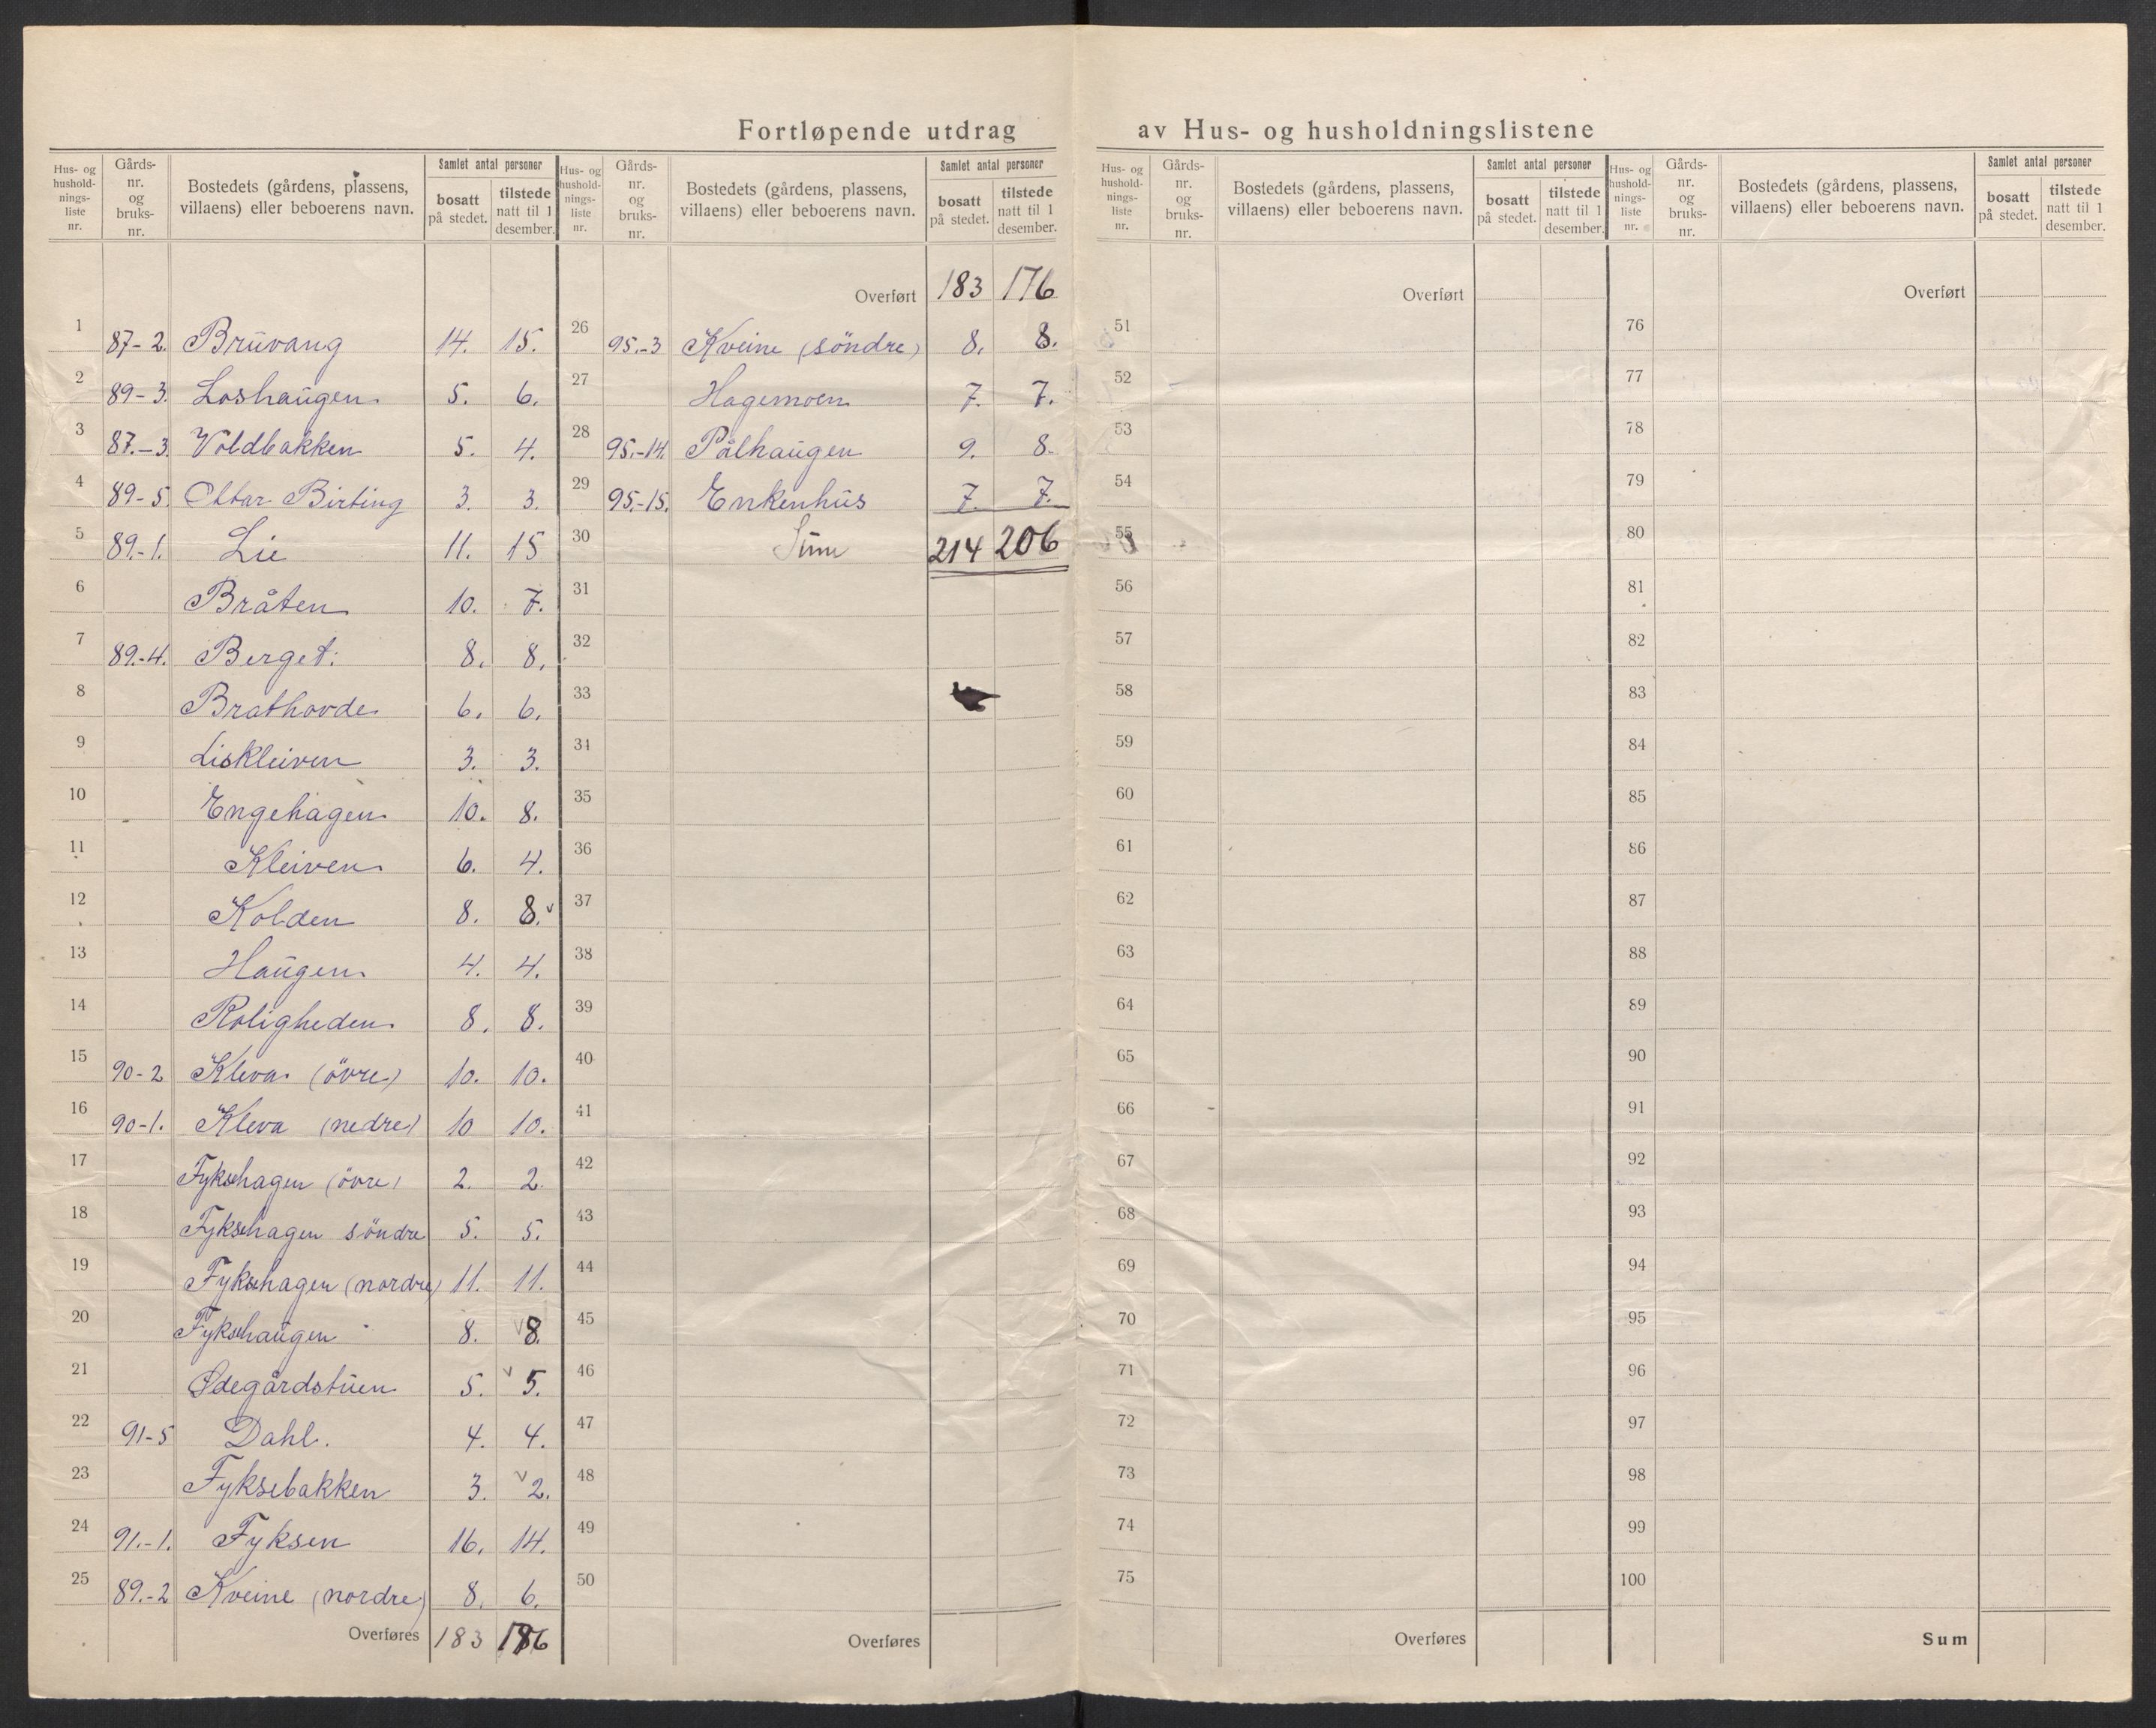 Fortløpende utdrag av Hus- og husholdningslistene
Hus- og hushold- nings- liste nr. | Gårds- nr. og bruks- nr. | Bostedets (gårdens, plassens, villaens) eller beboerens navn. | Samlet antal personer | bosatt på stedet. | tilstede natt til 1 desember.
1 87-2. Bruvang 14. 15.
2 89-3. Loshaugen 5. 6.
3 87.-3. Voldbakken 5. 4.
4 89-5. Ottar Birting 3. 3.
5 89.-1. Lie 11. 15
6 Bråten 10. 7.
7 89.-4. Berget. 8. 8.
8 Brathovde 6. 6.
9 Liskleiven 3. 3.
10 Engehagen 10. 8.
11 Kleiven 6. 4.
12 Kolden 8. 8.
13 Haugen 4. 4.
14 Roligheden 8. 8.
15 90-2 Kleva (övre) 10. 10.
16 90-1. Kleva (nedre) 10 10.
17 Fyksehagen (övre) 2. 2.
18 Fyksehagen söndre 5. 5.
19 Fyksehagen (nordre) 11. 11.
20 Fyksehaugen 8. 8.
21 Ødegårdstuen 5. 5.
22 91-5 Dahl. 4. 4.
23 Fyksebakken 3. 2.
24 91.-1. Fyksen 16. 14.
25 89.-2 Kveine (nordre) 8. 6.
Overføres 183 176
Hus- og hushold- nings- liste nr. | Gårds- nr. og bruks- nr. | Bostedets (gårdens, plassens, villaens) eller beboerens navn. | Samlet antal personer | bosatt på stedet. | tilstede natt til 1 desember.
Overført 183 176
26 95.-3 Kveine (söndre) 8. 8.
27 Hagemoen 7. 7.
28 95.-14. Pålhaugen 9. 8.
29 95.-15. Enkenhus 7. 7.
30 Sum 214 206
31
32
33
34
35
36
37
38
39
40
41
42
43
44
45
46
47
48
49
50
Overføres
Hus- og hushold- nings- liste nr. | Gårds- nr. og bruks- nr. | Bostedets (gårdens, plassens, villaens) eller beboerens navn. | Samlet antal personer | bosatt på stedet. | tilstede natt til 1 desember.
Overført
51
52
53
54
55
56
57
58
59
60
61
62
63
64
65
66
67
68
69
70
71
72
73
74
75
Overføres
Hus- og hushold- nings- liste nr. | Gårds- nr. og bruks- nr. | Bostedets (gårdens, plassens, villaens) eller beboerens navn. | Samlet antal personer | bosatt på stedet. | tilstede natt til 1 desember.
Overført
76
77
78
79
80
81
82
83
84
85
86
87
88
89
90
91
92
93
94
95
96
97
98
99
100
Sum